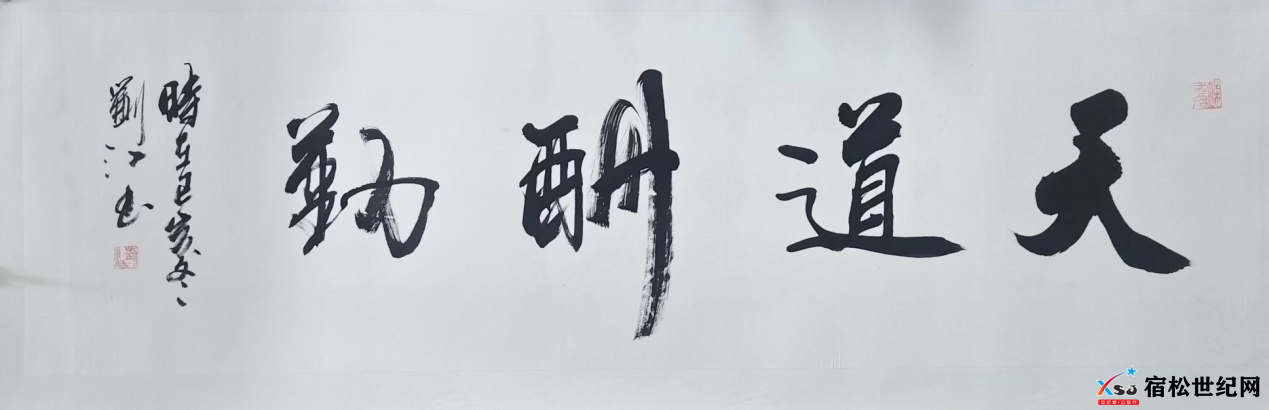 天道酬勤
時在己亥冬
劉江书
XSJ 宿松世纪网